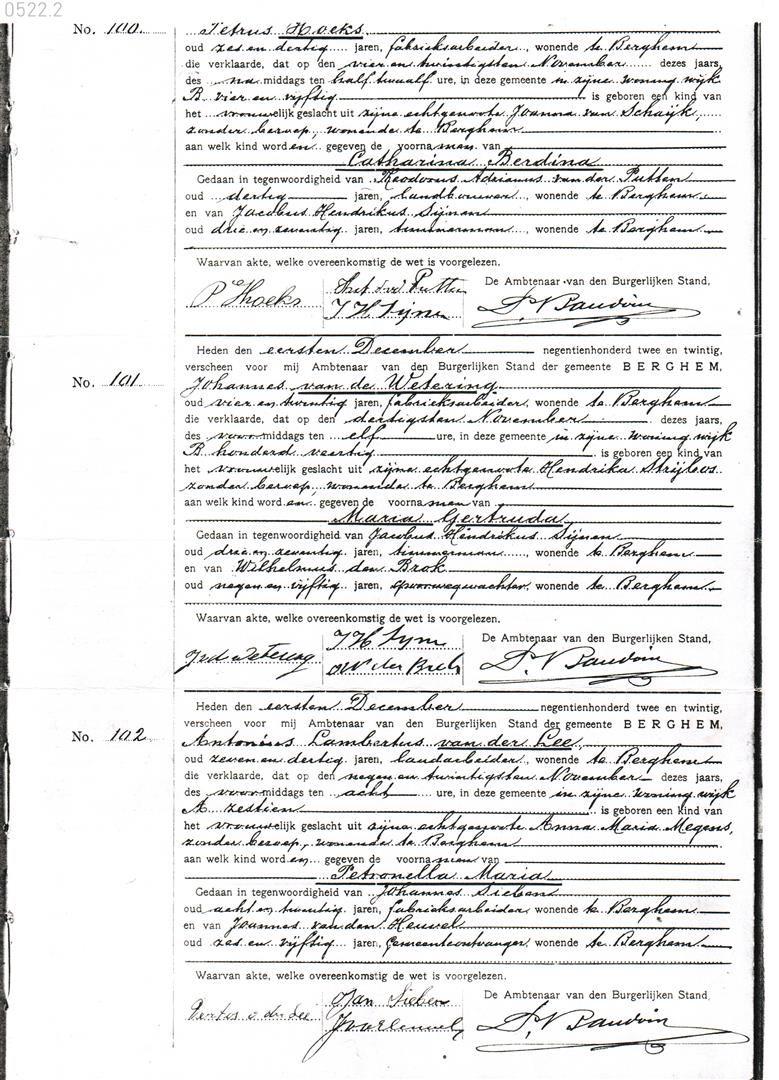 0522.2
No. 100. Petrus Hoeks
oud zes en dertig jaren, fabrieksarbeider, wonende te Berghem
die verklaarde, dat op den vier en twintigsten November dezes jaars,
des na middags ten half twaalf ure, in deze gemeente in zijne woning wijk
B vier en vijftig is geboren een kind van
het vrouwelijk geslacht uit zijne echtgenoote Joanna van Schaijk,
zonder beroep, wonende te Berghem
aan welk kind worden gegeven de voornamen van
Catharina Berdina
Gedaan in tegenwoordigheid van Theodorus Adrianus van der Putten
oud dertig jaren, landbouwer, wonende te Berghem
en van Jacobus Hendrikus Sijnen
oud drie en zeventig jaren, timmerman, wonende te Berghem
Waarvan akte, welke overeenkomstig de wet is voorgelezen.
De Ambtenaar van den Burgerlijken Stand,
P Hoeks
Heden den eersten December negentienhonderd twee en twintig,
verscheen voor mij Ambtenaar van den Burgerlijken Stand der gemeente BERGHEM,
No. 101 Johannes van de Wetering
oud vier en twintig jaren, fabrieksarbeider, wonende te Berghem
die verklaarde, dat op den dertigsten November dezes jaars,
des voormiddags ten elf ure, in deze gemeente in zijne woning wijk
B honderd veertig is geboren een kind van
het vrouwelijk geslacht uit zijne echtgenoote Hendrika Strijbos
zonder beroep, wonende te Berghem
aan welk kind worden gegeven de voornamen van
Maria Gertruda
Gedaan in tegenwoordigheid van Jacobus Hendrikus Sijnen
oud drie en zeventig jaren, timmerman, wonende te Berghem
en van Wilhelmus den Brok
oud negen en vijftig jaren, spoorwegwachter, wonende te Berghem
Waarvan akte, welke overeenkomstig de wet is voorgelezen.
De Ambtenaar van den Burgerlijken Stand,
Heden den eersten December negentienhonderd twee en twintig,
verscheen voor mij Ambtenaar van den Burgerlijken Stand der gemeente BERGHEM,
No. 102 Antonius Lambertus van der Lee
oud zeven en dertig jaren, landarbeider, wonende te Berghem
die verklaarde, dat op den negen en twintigsten November dezes jaars,
des voormiddags ten acht ure, in deze gemeente in zijne woning wijk
A zestien is geboren een kind van
het vrouwelijk geslacht uit zijne echtgenoote Anna Maria Megens,
zonder beroep, wonende te Berghem
aan welk kind worden gegeven de voornamen van
Petronella Maria
Gedaan in tegenwoordigheid van Johannes Sieben
oud acht en twintig jaren, fabrieksarbeider wonende te Berghem
en van Joannes van den Heuvel
oud zes en vijftig jaren, gemeenteontvanger, wonende te Berghem
Waarvan akte, welke overeenkomstig de wet is voorgelezen.
De Ambtenaar van den Burgerlijken Stand,
Jan Sieben